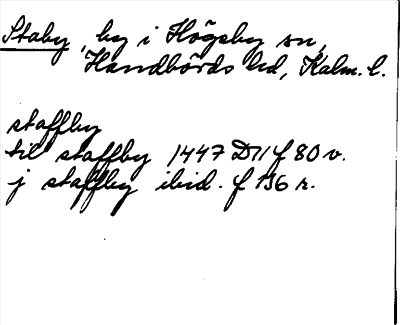 Staby, by i Högsby sn,
Handbörds hd, Kalm. l.
staffby
til staffby 1447 D11 f 80 v.
j staffby ibid. f 136 r.